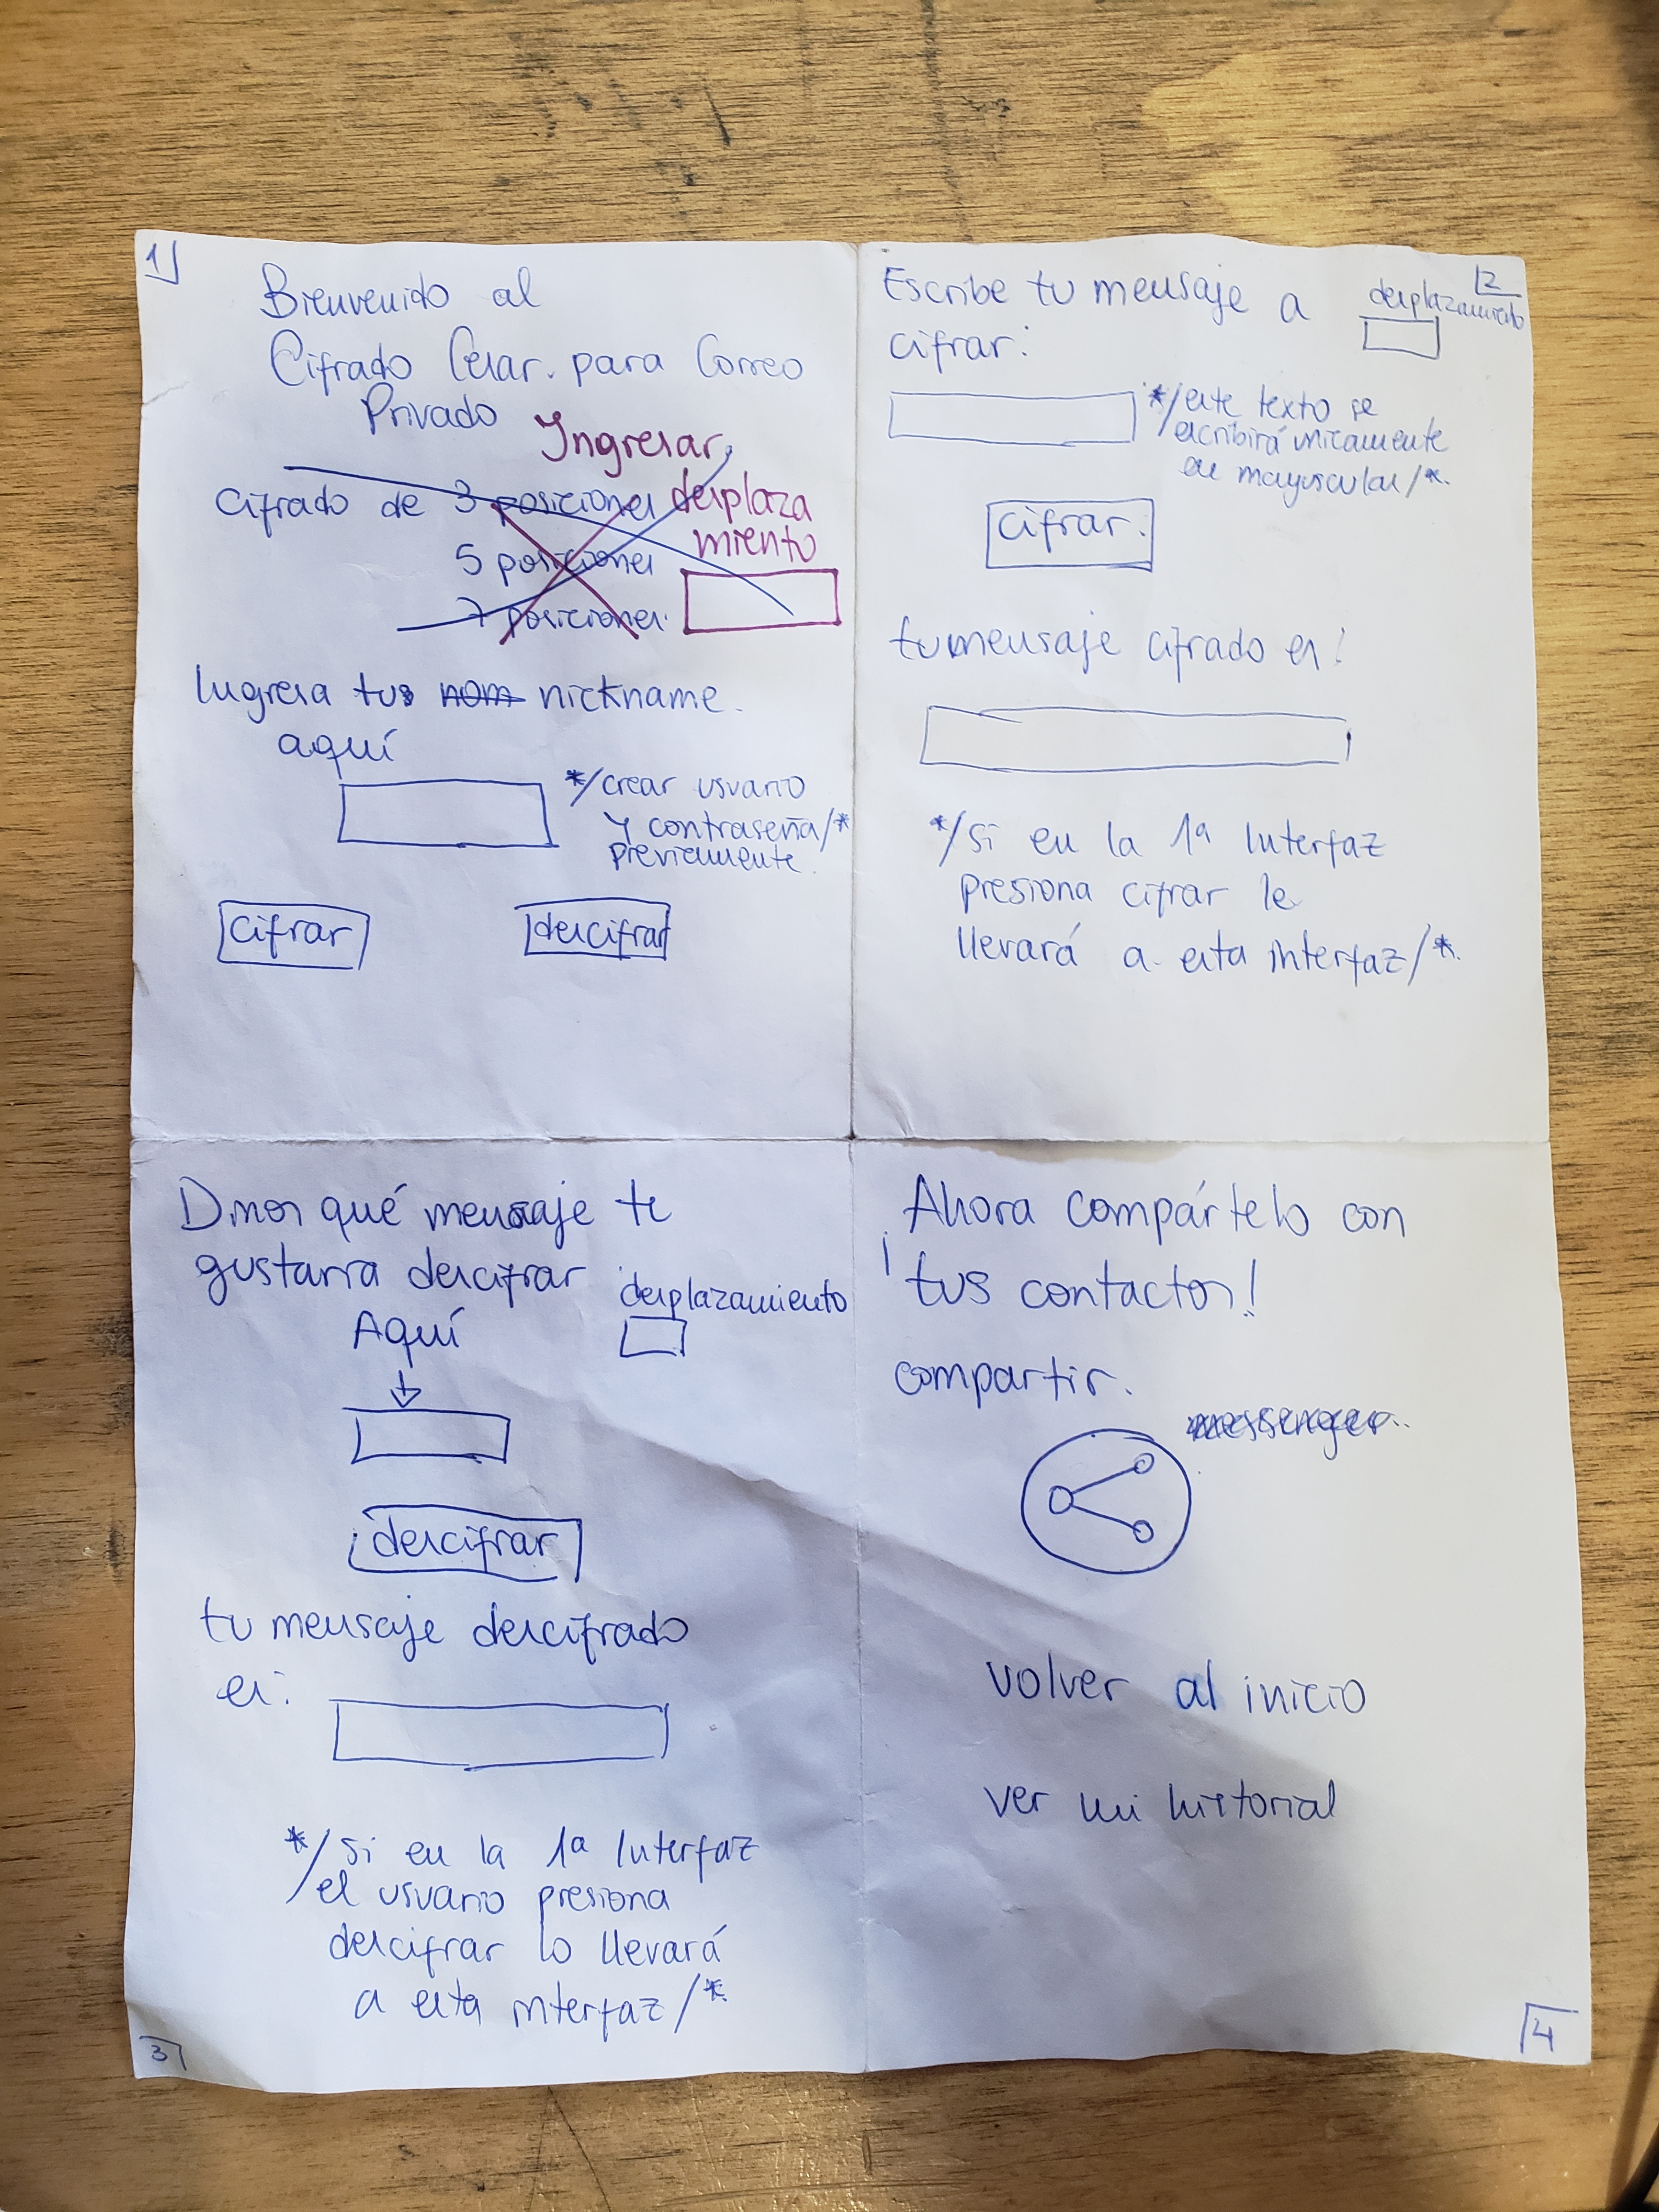 1
Bienvenido al
Cifrado Cesar. para Correo
Privado
Ingresar
desplaza
miento
Cifrado de 3 posiciones
5 posiciones
7 posiciones.
Ingresa tus nom nickname.
aquí
*/crear usuario
y contraseña/*
previamente.
cifrar
descifrar
2
Escribe tu mensaje a
cifrar:
desplazamiento
*/este texto se
escribirá unicamente
en mayusculas/*.
cifrar.
tu mensaje cifrado es:
*/Si en la 1ª Interfaz
presiona cifrar le
llevará a esta interfaz/*.
Dinos qué mensaje te
gustarra descifrar
Aquí
desplazamiento
descifrar
tu mensaje descifrado
es:
*/Si en la 1ª Interfaz
el usuario presiona
descifrar lo llevará
a esta interfaz/*.
3
Ahora compártelo con
¡tus contactos!
compartir.
messenger..
volver al inicio
ver mi historial
4